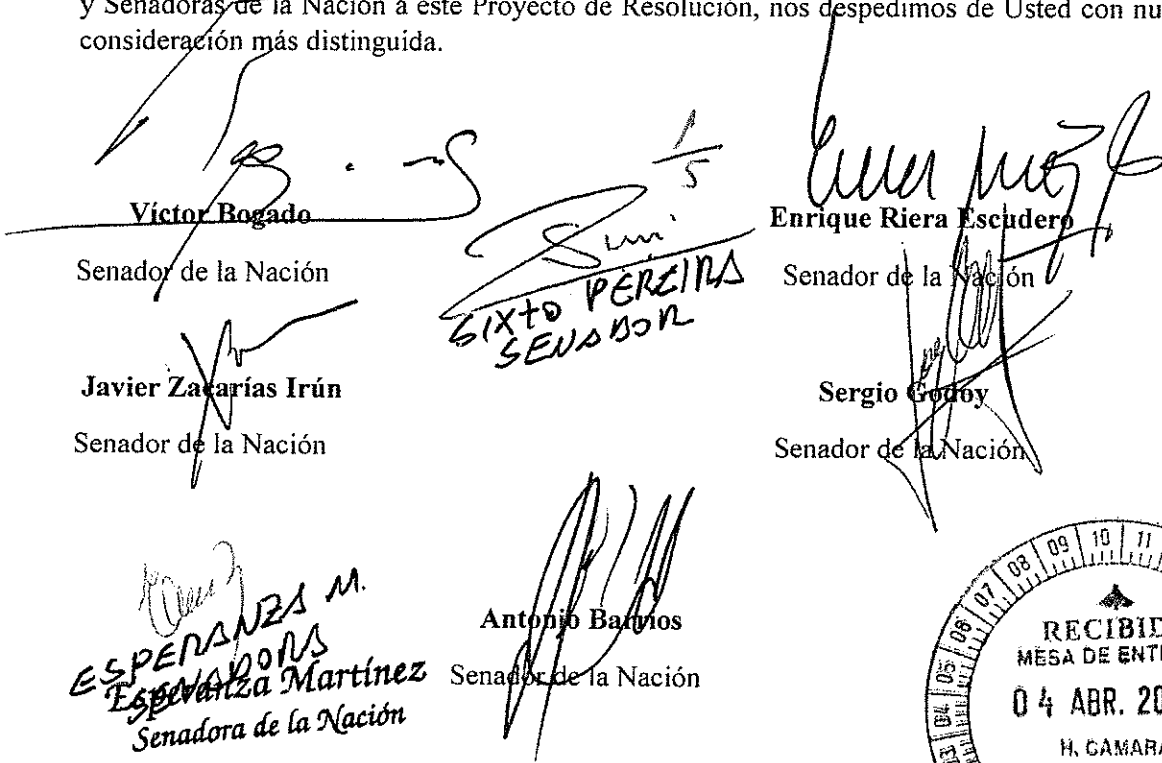 y Senadoras de la Nación a este Proyecto de Resolución, nos despedimos de Usted con nu
consideración más distinguida.
1/5
Víctor Bogado
Senador de la Nación
SIXTO PEREIRA
SENADOR
Enrique Riera Escudero
Senador de la Nación
Javier Zacarías Irún
Senador de la Nación
Sergio Godoy
Senador de la Nación
ESPERANZA M.
SENADORA
Esperanza Martínez
Senadora de la Nación
Antonio Barrios
Senador de la Nación
03 04 05 06 07 08 09 10 11
RECIBID
MESA DE ENT
04 ABR. 20
H. CAMARA